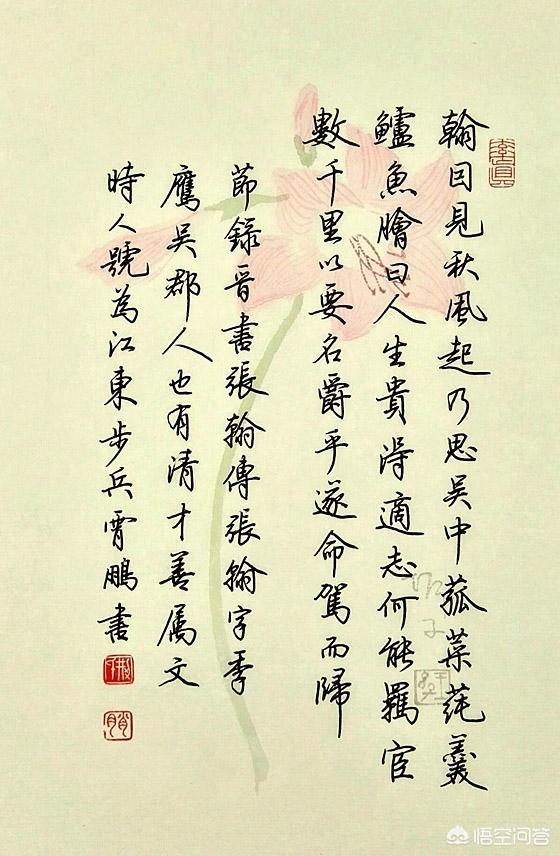 翰因見秋風起乃思吳中菰菜蒓羹
鱸魚膾曰人生貴得適志何能羈宦
數千里以要名爵乎遂命駕而歸
節錄晉書張翰傳張翰字季
鷹吳郡人也有清才善属文
時人號為江東步兵霄鵬書
悟空问答